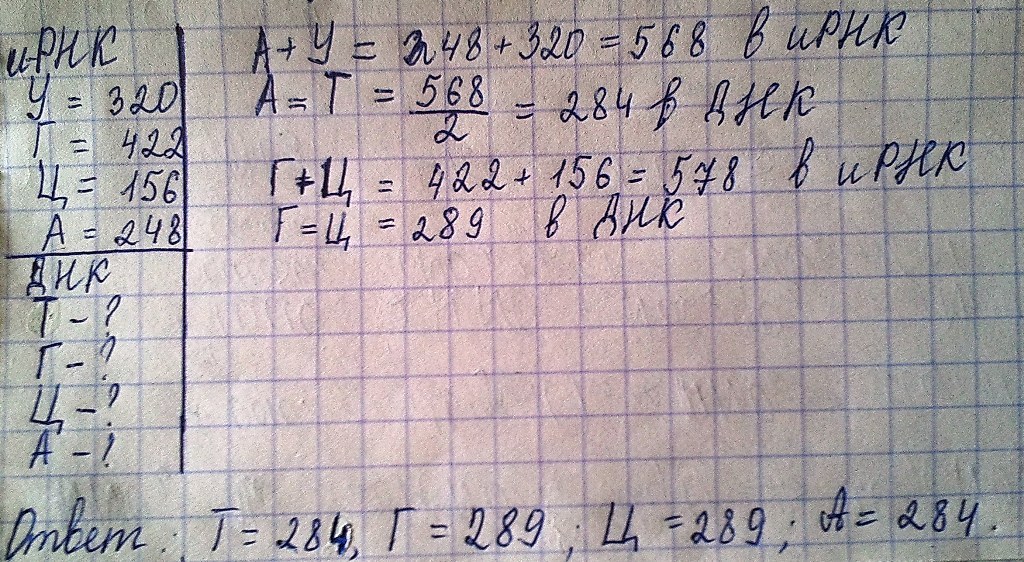 и-РНК
У = 320
Г = 422
Ц = 156
А = 248
ДНК
Т - ?
Г - ?
Ц - ?
А - ?
А + У = 248 + 320 = 568 в иРНК
А = Т = 568/2 = 284 в ДНК
Г + Ц = 422 + 156 = 578 в иРНК
Г = Ц = 289 в ДНК
Ответ: Т = 284, Г = 289; Ц = 289; А = 284.